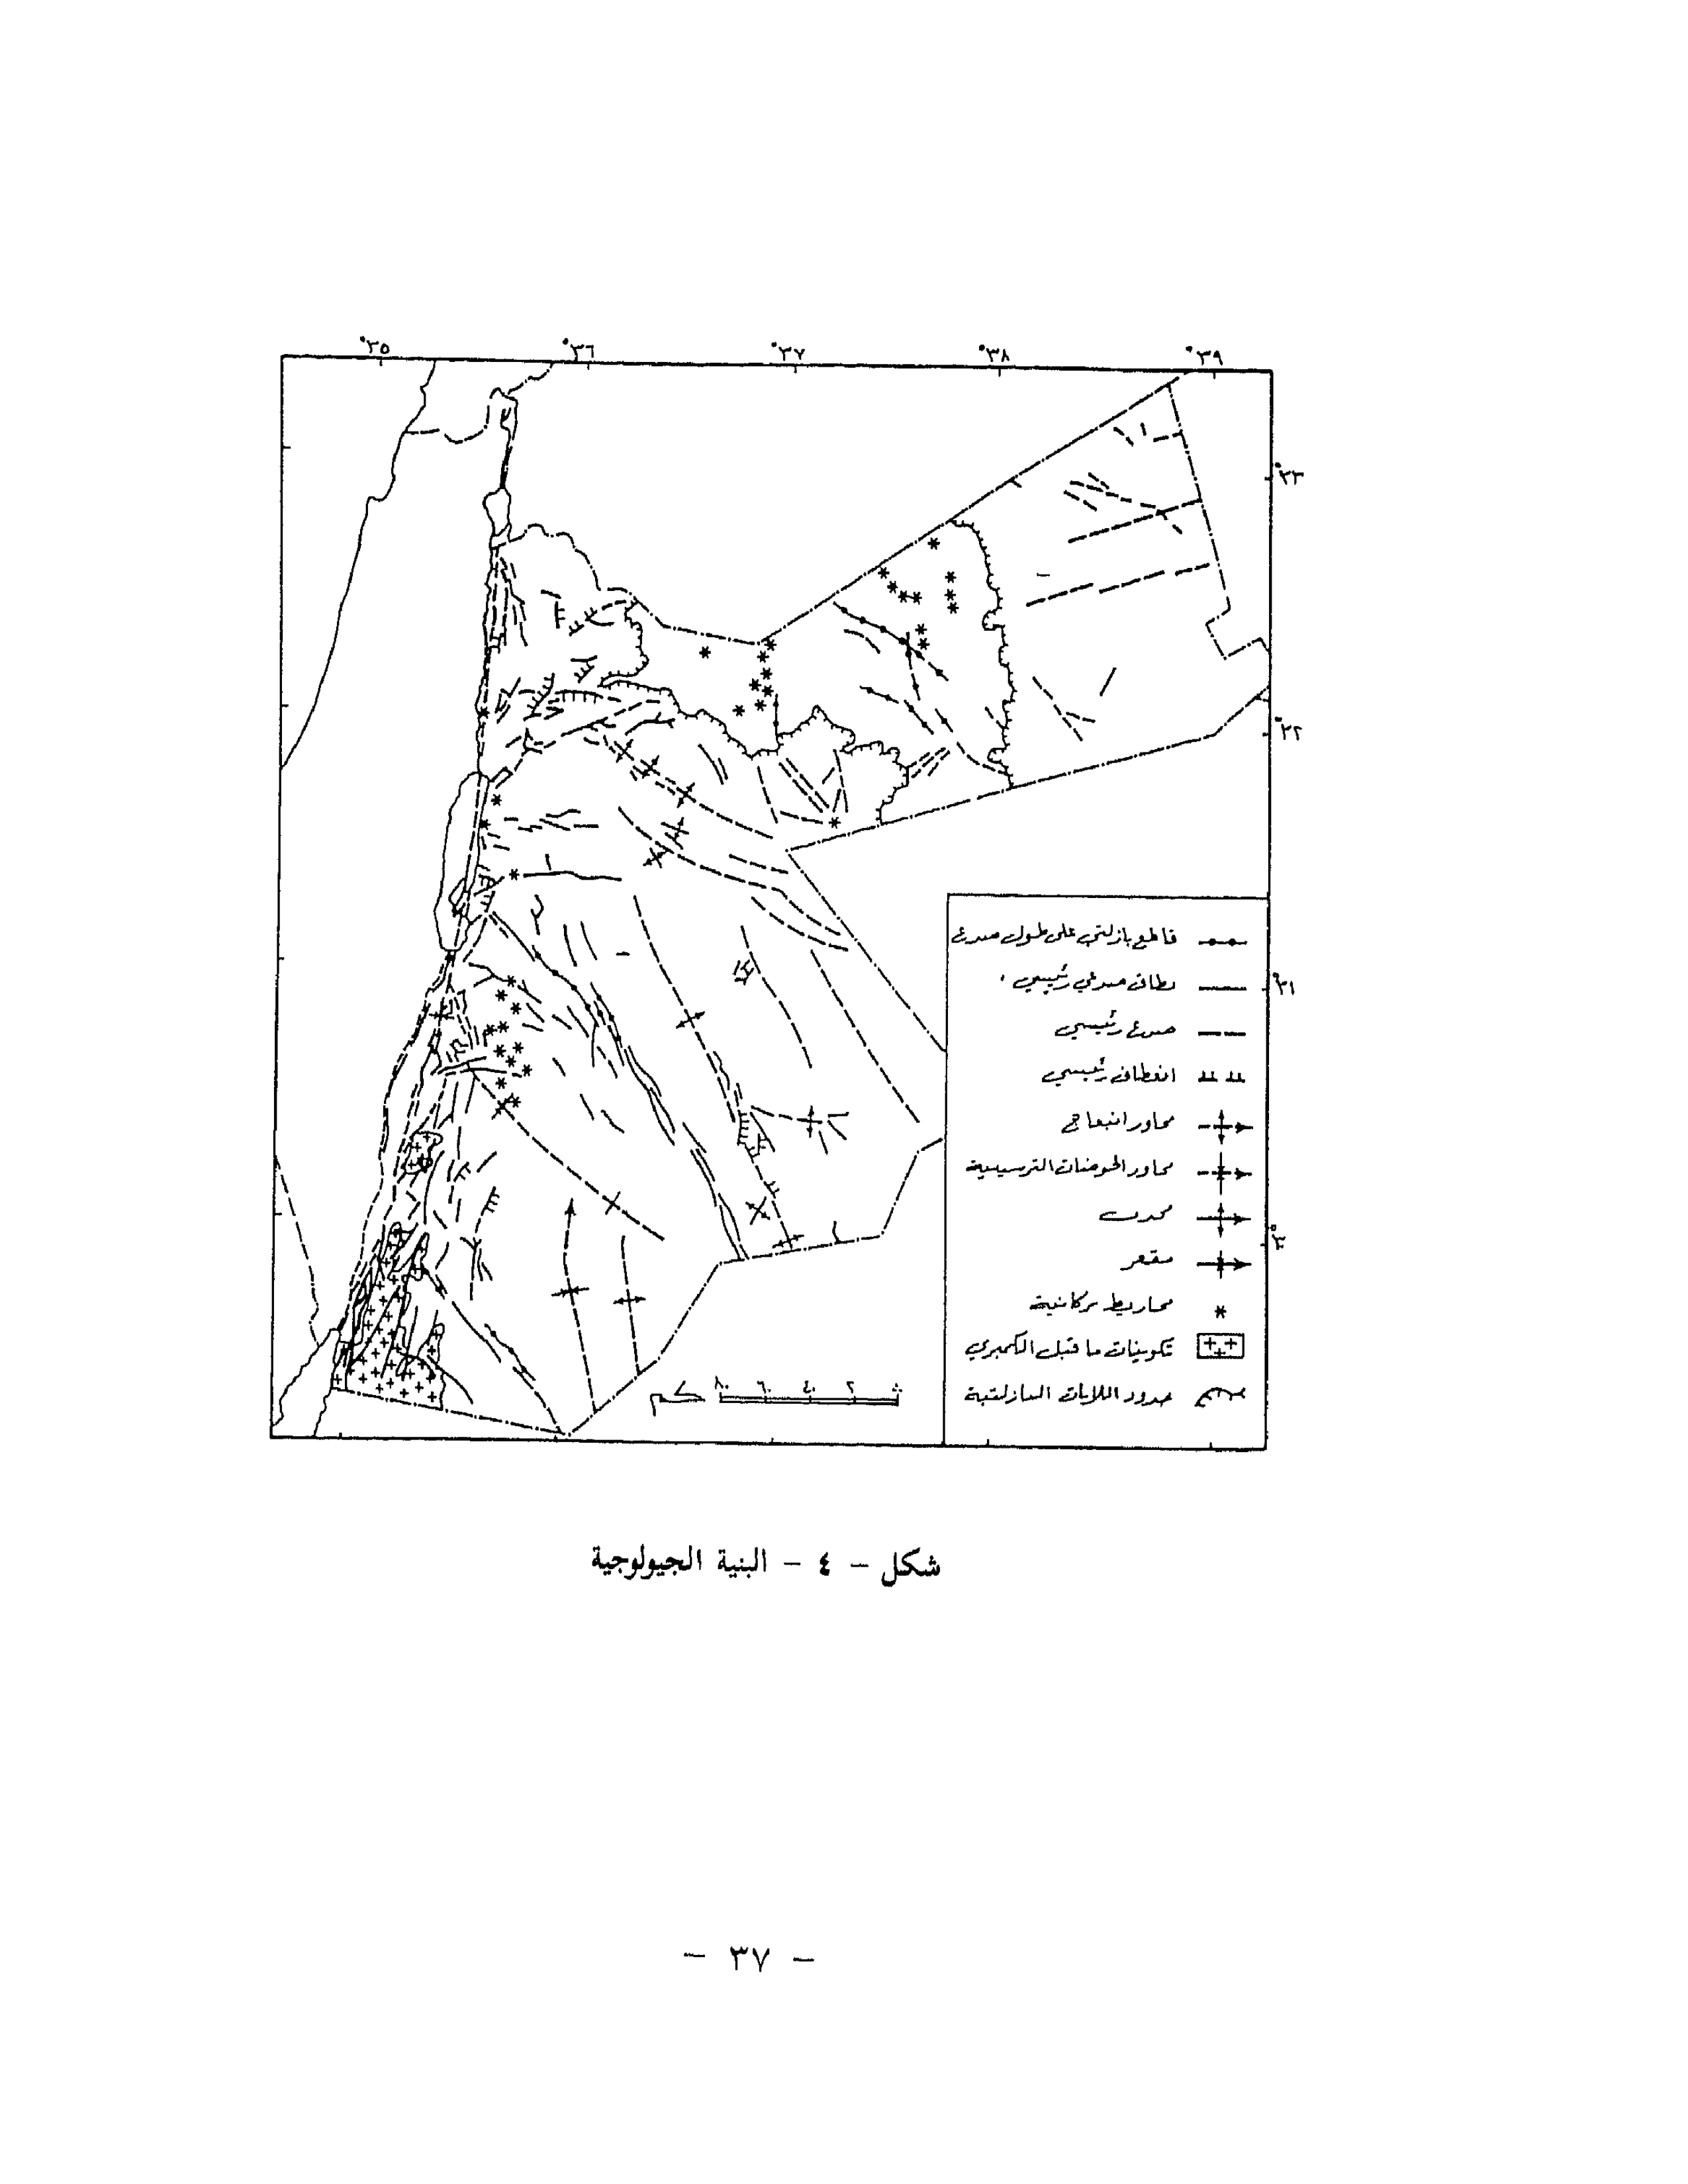 °٣٥ °٣٦ °٣٧ °٣٨ °٣٩
°٣٣
°٣٢
°٣١
°٣٠
قاطع بازلتي على طول صدع
نطاق صدعي رئيسي .
صدع رئيسي
انعطاف رئيسي
محاور انبعاج
محاور الحوضات الترسيبية
محدب
مقعر
مخاريط بركانية
تكوينات ما قبل الكمبري
حدود اللابات البازلتية
٨٠ ٦٠ ٤٠ ٢٠ ٠
كم
شكل - ٤ - البنية الجيولوجية
- ٣٧ -